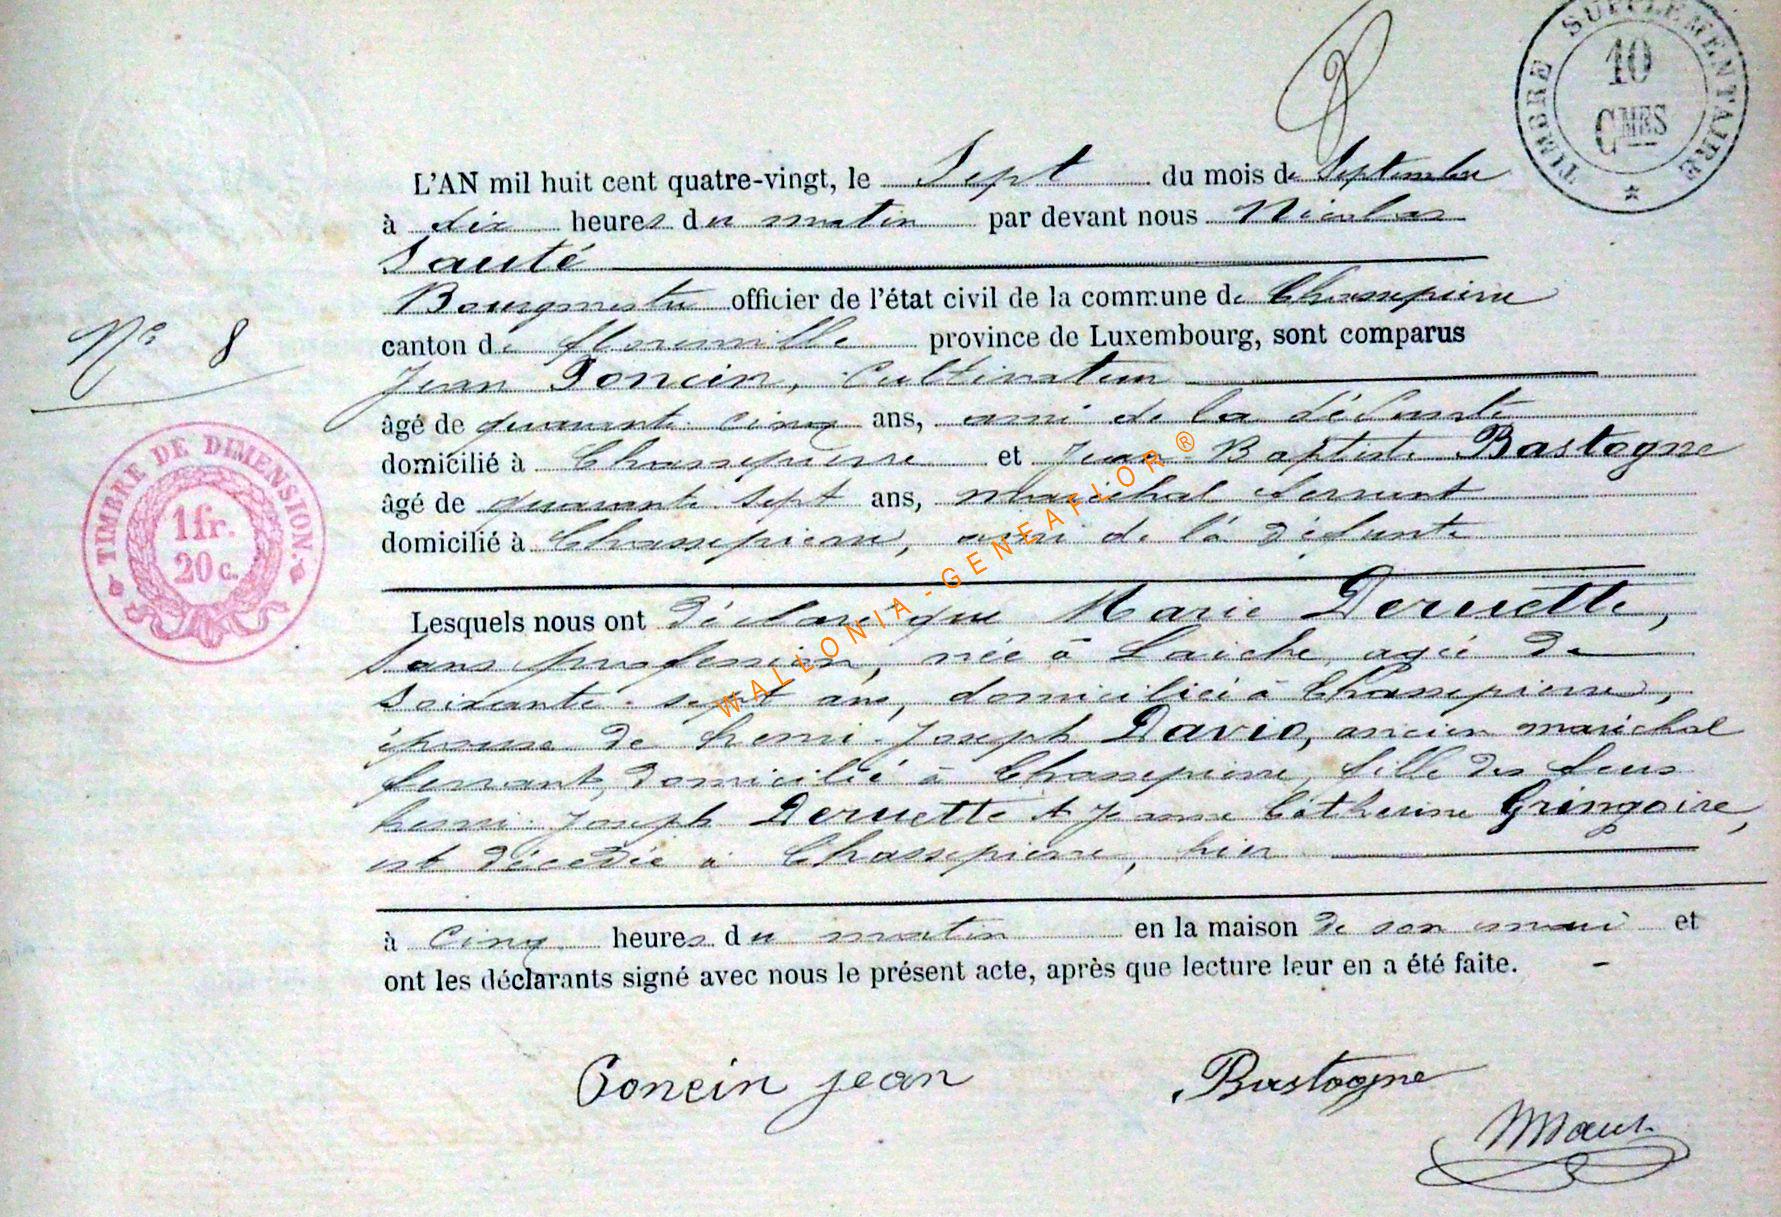 TIMBRE SUPPLÉMENTAIRE
10
CMES
8
L'AN mil huit cent quatre-vingt, le Sept du mois de Septembre
à dix heures du matin par devant nous Nicolas
Sauté
Bourgmestre officier de l'état civil de la commune de Chassepierre
N° 8
canton de florenville province de Luxembourg, sont comparus
Jean Poncin, Cultivateur
âgé de quarante cinq ans, ami de la défunte
domicilié à Chassepierre et Jean-Baptiste Bastogne
âgé de quarante sept ans, maréchal ferrant
domicilié à Chassepierre, ami de la défunte
TIMBRE DE DIMENSION.
1fr.
20 c.
Lesquels nous ont déclaré que Marie Deruette,
Sans profession, née à Laiche, agée de
soixante-sept ans, domiciliée à Chassepierre,
épouse de henri-Joseph Davio, ancien maréchal
ferrant, domicilié à Chassepierre, fille des feus
henri-Joseph Deruette et Jeanne Catherine Gringoire,
est décédée à Chassepierre, hier
à cinq heures du matin en la maison de son mari et
ont les déclarants signé avec nous le présent acte, après que lecture leur en a été faite.
Poncin jean
Bastogne
WALLONIA-GENEAFLOR®